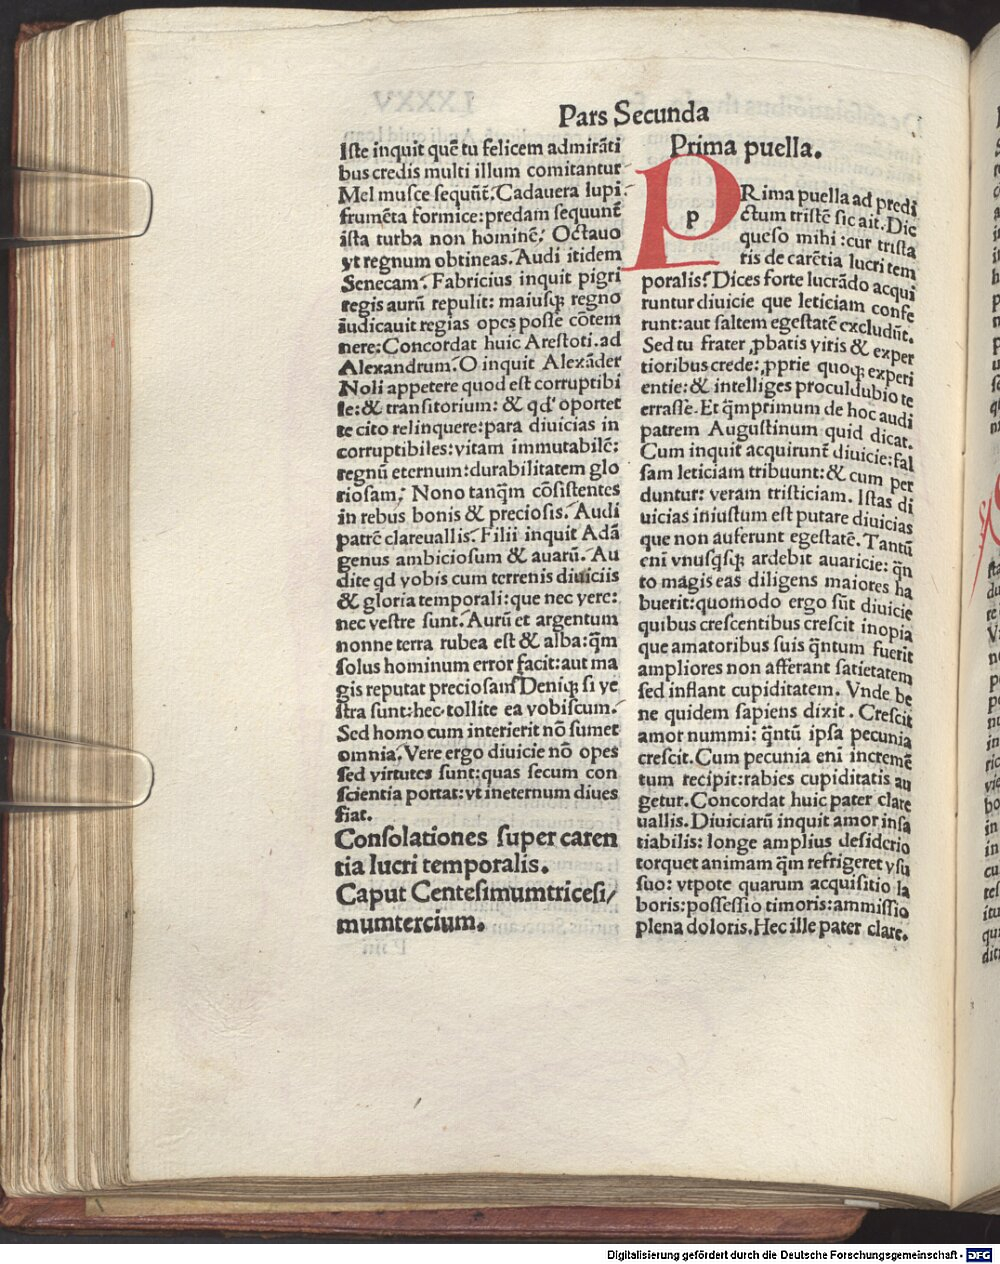 Pars Secunda
Iste inquit quē tu felicem admirāti
bus credis multi illum comitantur
Mel musce sequūt. Cadauera lupi
frumēta formice: predam sequunt̄
ista turba non hominē. Octauo
vt regnum obtineas. Audi itidem
Senecam. Fabricius inquit pigri
regis aurū repulit: maiusqꝫ regno
iudicauit regias opes posse cōtem
nere: Concordat huic Arestoti. ad
Alexandrum. O inquit Alexāder
Noli appetere quod est corruptibi
le: & transitorium: & qd' oportet
te cito relinquere: para diuicias in
corruptibiles: vitam immutabilē:
regnū eternum: durabilitatem glo
riosam. Nono tanq̄m cōsistentes
in rebus bonis & preciosis. Audi
patrē clareuallis. Filii inquit Adā
genus ambiciosum & auarū. Au
dite qd vobis cum terrenis diuiciis
& gloria temporali: que nec vere:
nec vestre sunt. Aurū et argentum
nonne terra rubea est & alba: q̄m
solus hominum error facit: aut ma
gis reputat preciosam? Deniqꝫ si ve
stra sunt: hec tollite ea vobiscum.
Sed homo cum interierit nō sumet
omnia. Vere ergo diuicie nō opes
sed virtutes sunt: quas secum con
scientia portat: vt ineternum diues
fiat.
Consolationes super caren
tia lucri temporalis.
Caput Centesimumtricesi/
mumtercium.
Prima puella.
p
PRima puella ad predi
ctum tristē sic ait. Dic
queso mihi: cur trista
ris de carētia lucri tem
poralis? Dices forte lucrādo acqui
runtur diuicie que leticiam confe
runt: aut saltem egestatē excludūt.
Sed tu frater ꝓbatis viris & exper
tioribus crede: ꝓprie quoqꝫ experi
entie: & intelliges proculdubio te
errasse. Et q̄mprimum de hoc audi
patrem Augustinum quid dicat.
Cum inquit acquirunt̄ diuicie: fal
sam leticiam tribuunt: & cum per
duntur: veram tristiciam. Istas di
uicias iniustum est putare diuicias
que non auferunt egestatē. Tantū
eni̅ vnusqsqꝫ ardebit auaricie: q̄n
to magis eas diligens maiores ha
buerit: quomodo ergo sūt diuicie
quibus crescentibus crescit inopia
que amatoribus suis q̄ntum fuerit
ampliores non afferant satietatem
sed inflant cupiditatem. Vnde be
ne quidem sapiens dixit. Crescit
amor nummi: q̄ntū ipsa pecunia
crescit. Cum pecunia eni̅ incremē
tum recipit: rabies cupiditatis au
getur. Concordat huic pater clare
uallis. Diuiciarū inquit amor insa
tiabilis: longe amplius desiderio
torquet animam q̄m refrigeret vsu
suo: vtpote quarum acquisitio la
boris: possessio timoris: ammissio
plena doloris. Hec ille pater clare.
Digitalisierung gefördert durch die Deutsche Forschungsgemeinschaft - DFG